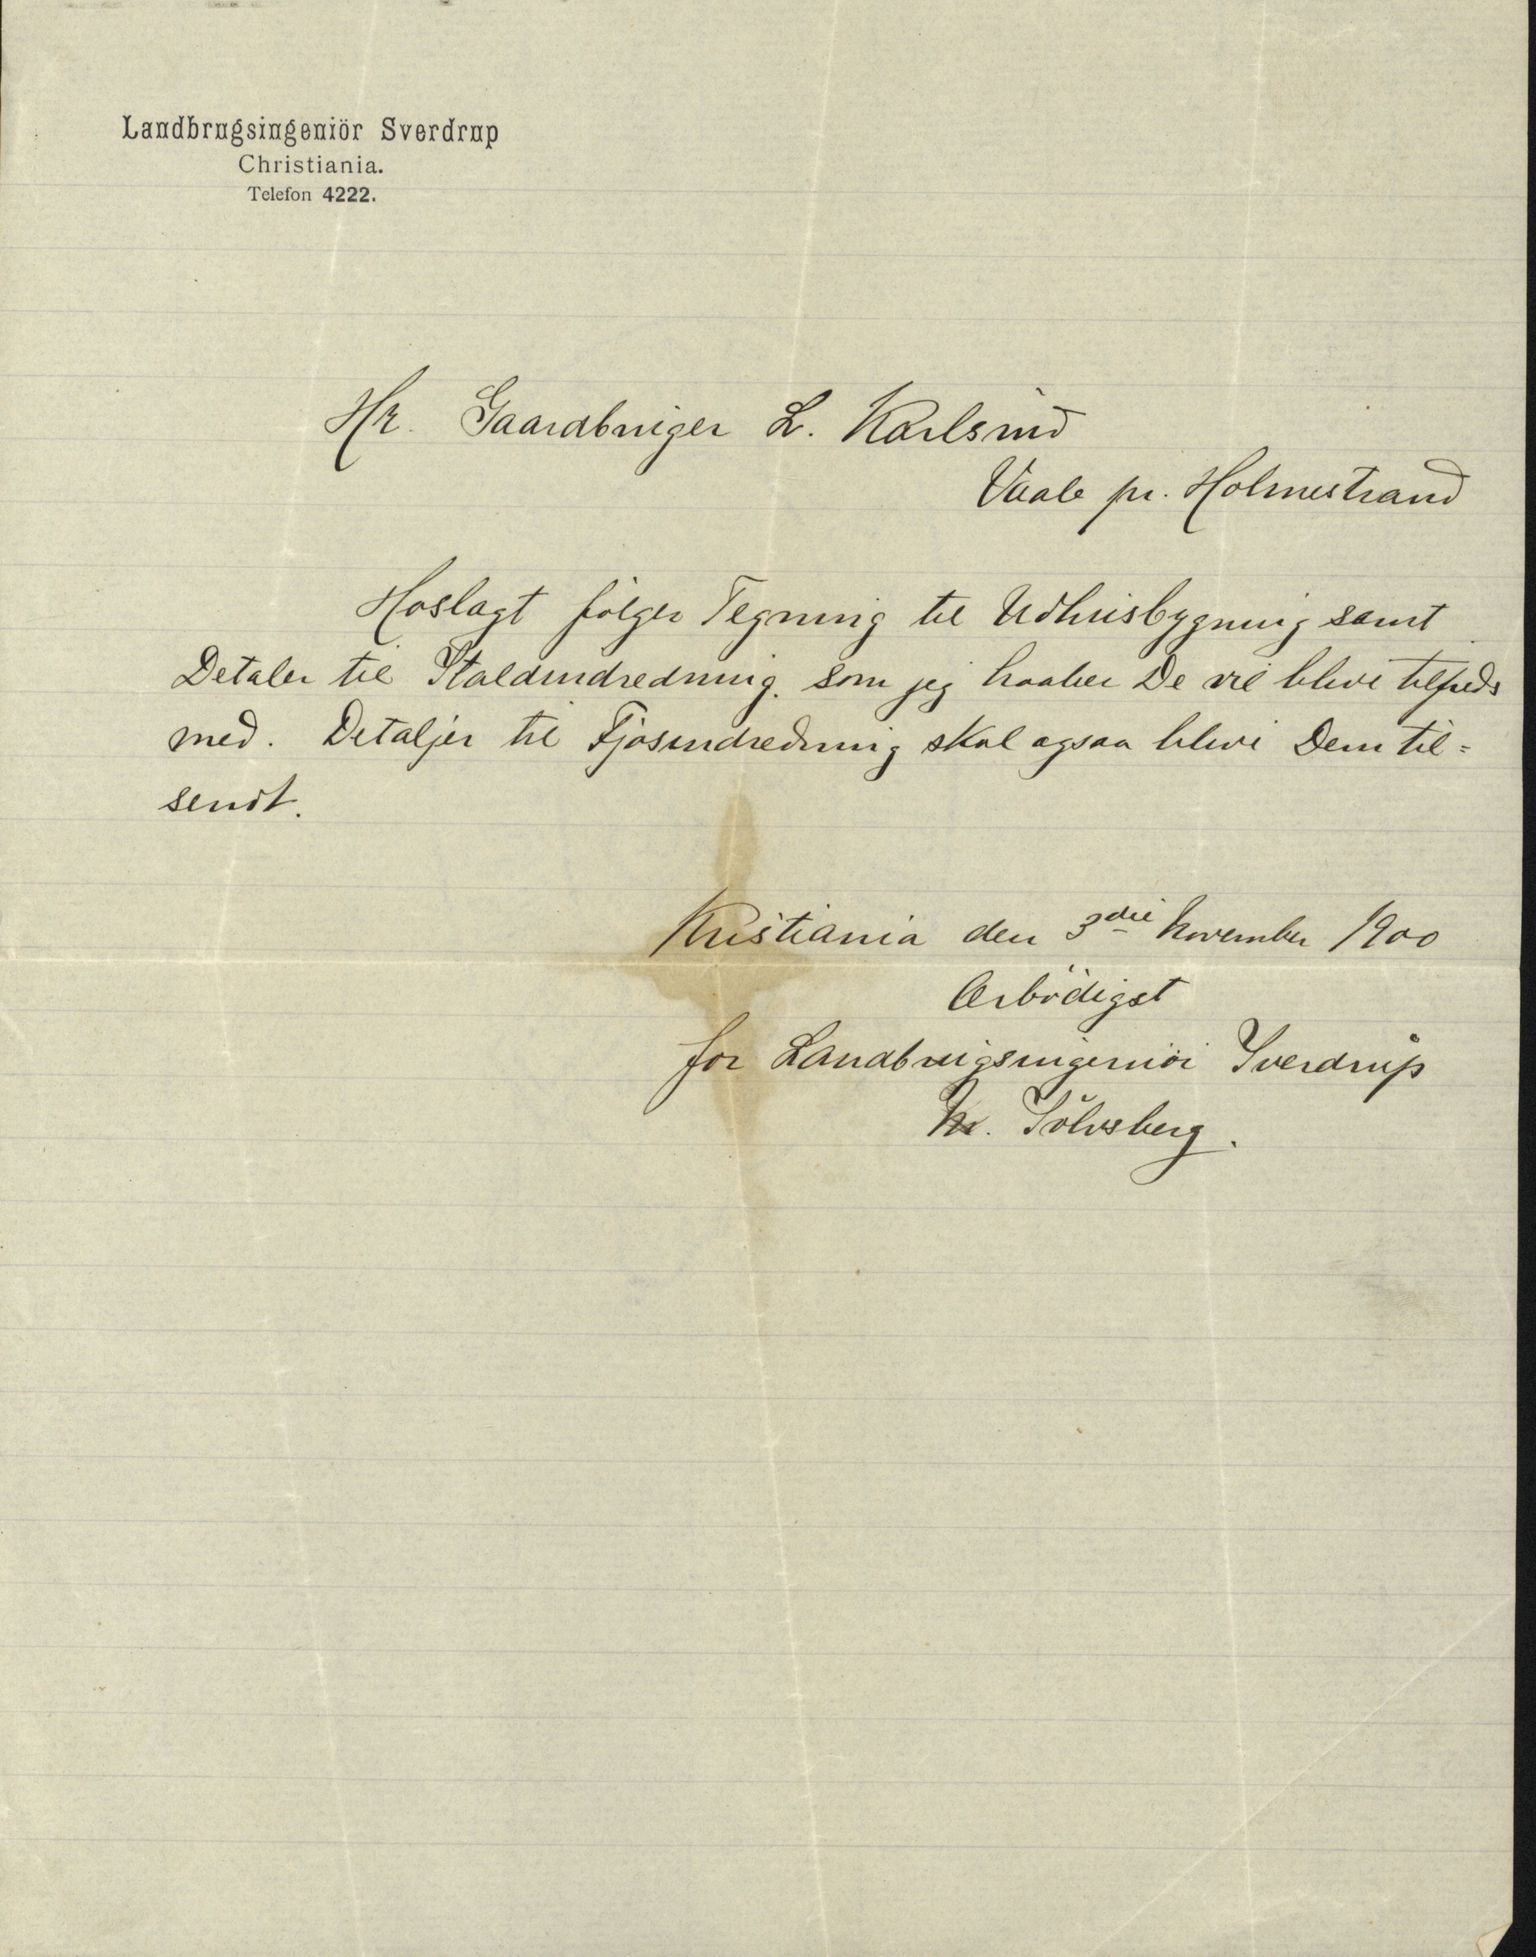 Landbrugsingeniör Sverdrup
Christiania.
Telefon 4222.
Hr. Gaardbruger L. Karlsrud
Vaale pr. Holmestrand
Hoslagt følger Tegning til Udhusbygning samt
Detaler til Staldindredning som jeg haaber De vil blive tilfreds
med. Detaljer til Fjøsindredning skal ogsaa blive Dem til=
sendt.
Kristiania den 3die November 1900
Ærbödigst
for Landbrugsingeniör Sverdrup
Sölvsberg.